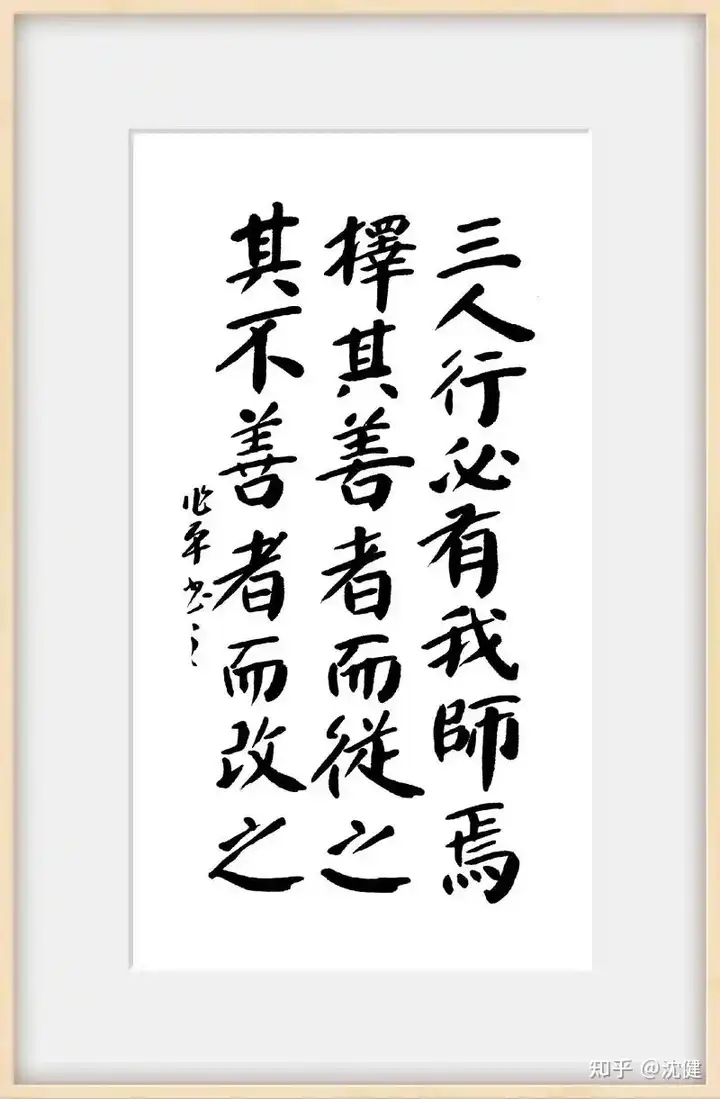 三人行必有我師焉
擇其善者而從之
其不善者而改之
知乎 @沈健